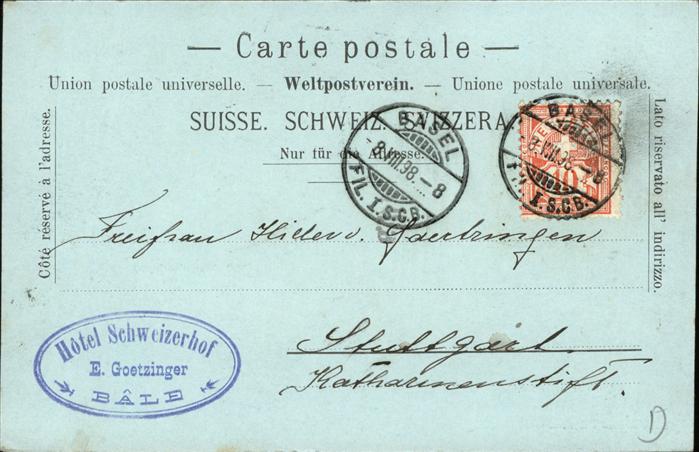 — Carte postale —
Union postale universelle. — Weltpostverein. — Unione postale universale.
SUISSE. SCHWEIZ. SVIZZERA.
Nur für die Adresse.
Côté réservé à l'adresse.
Lato riservato all' indirizzo.
BASEL
-8.VIII.98.-8
FIL. I.S.C.B.
BASEL
-8.VIII.98.-8
FIL. I.S.C.B.
10
Freifrau Hiller v. Gaertringen
Stuttgart.
Katharinenstift.
Hôtel Schweizerhof
E. Goetzinger
BÂLE
D